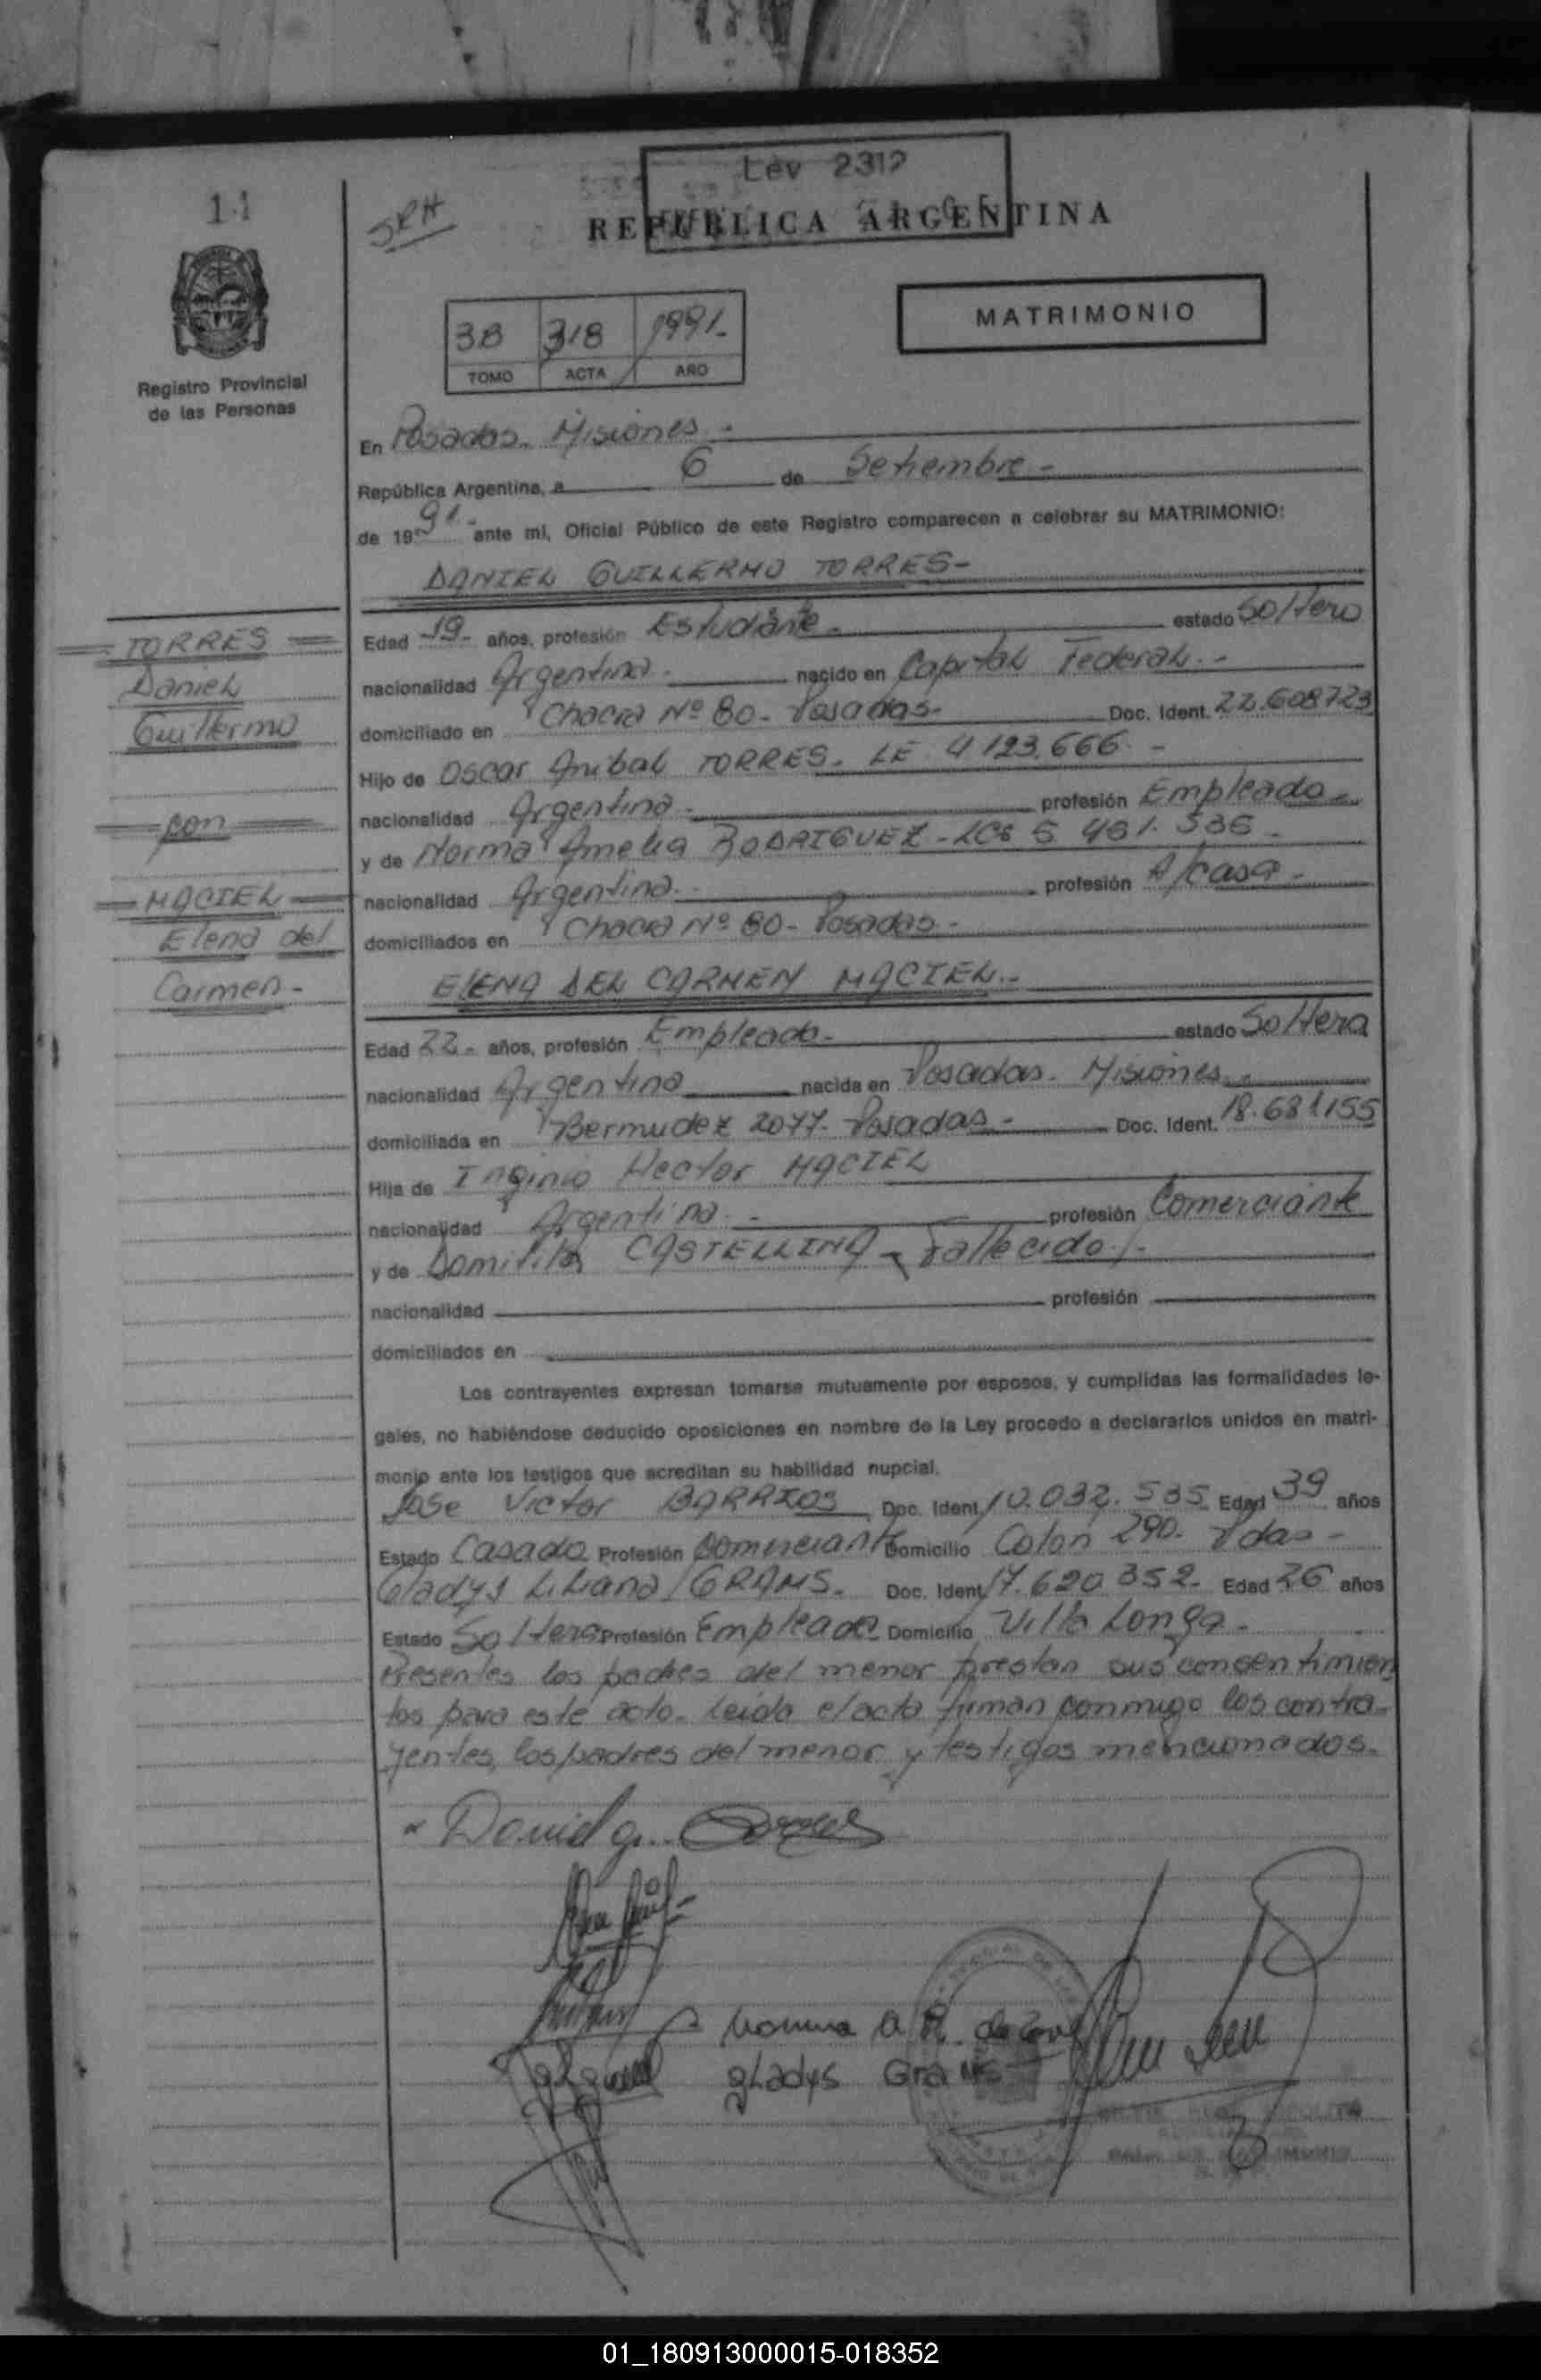 Ley 2312
11
SRH
REPUBLICA ARGENTINA
38 318 1991.-
TOMO ACTA AÑO
MATRIMONIO
Registro Provincial
de las Personas
En Posadas. Misiones.-
República Argentina, a 6 de Setiembre-
de 1991.- ante mí, Oficial Público de este Registro comparecen a celebrar su MATRIMONIO:
DANIEL GUILLERMO TORRES-
TORRES
Daniel
Guillermo
con
MACIEL
Elena del
Carmen-
Edad 19- años, profesión Estudiante- estado Soltero
nacionalidad Argentina.- nacido en Capital Federal.-
domiciliado en Chacra Nº 80- Posadas- Doc. Ident. 22.608723
Hijo de Oscar Anibal TORRES. LE 4 123.666.-
nacionalidad Argentina.- profesión Empleado-
y de Norma Amelia RODRIGUEZ- 5 451.
nacionalidad Argentina.- profesión A/casa-
domiciliados en Chacra Nº 80- Posadas.-
ELENA DEL CARMEN MACIEL.-
Edad 22- años, profesión Empleada- estado Soltera
nacionalidad Argentina nacida en Posadas- Misiones.-
domiciliada en Bermudez 2077- Posadas- Doc. Ident. 18.681155
Hija de Higinio Hector MACIEL
nacionalidad Argentina.- profesión Comerciante
y de Domitila CASTELLINA- Fallecida/-
nacionalidad profesión
domiciliados en
Los contrayentes expresan tomarse mutuamente por esposos, y cumplidas las formalidades le-
gales, no habiéndose deducido oposiciones en nombre de la Ley procedo a declararlos unidos en matri-
monio ante los testigos que acreditan su habilidad nupcial.
Jose Victor BARRIOS Doc. Ident. 10.032.535 Edad 39 años
Estado Casado Profesión Comerciante Domicilio Colon 290- Pdas-
Gladys Liliana GRAMS- Doc. Ident. 17.620 352- Edad 26 años
Estado Soltera Profesión Empleada Domicilio Villa Longa-
Presentes los padres del menor prestan sus consentimien
tos para este acto- Leida el acta firman conmigo los contra-
yentes, los padres del menor y testigos mencionados-
Daniel G. Torres
Norma A R. de Torres
Gladys Grams
01_180913000015-018352